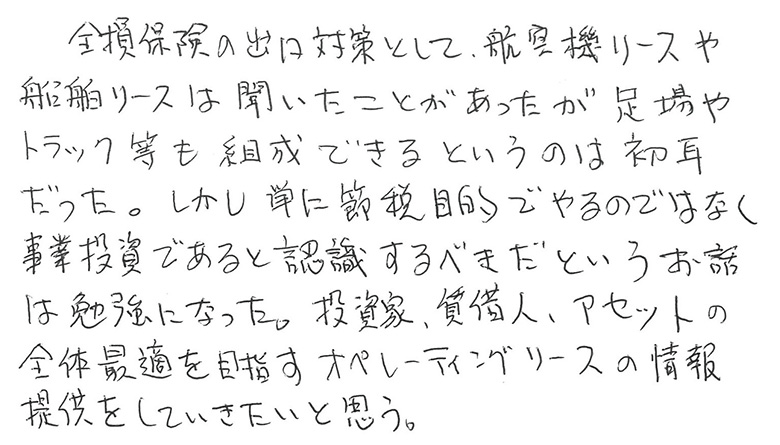 全損保険の出口対策として、航空機リースや
船舶リースは聞いたことがあったが足場や
トラック等も組成できるというのは初耳
だった。しかし単に節税目的でやるのではなく
事業投資であると認識するべきだというお話
は勉強になった。投資家、賃借人、アセットの
全体最適を目指すオペレーティングリースの情報
提供をしていきたいと思う。